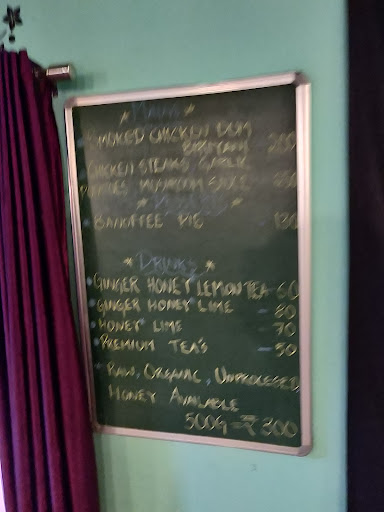 * MAINS *
* SMOKED CHICKEN DUM
BIRIYANI - 200
* CHICKEN STEAKS GARLIC
POTATOES MUSHROOM SAUCE
* BANOFFEE PIE - 130
* DRINKS *
* GINGER HONEY LEMON TEA - 60
* GINGER HONEY LIME - 80
* HONEY LIME - 70
* PREMIUM TEA'S - 50
* RAW, ORGANIC, UNPROCESSED
HONEY AVAILABLE
500G = ₹ 300